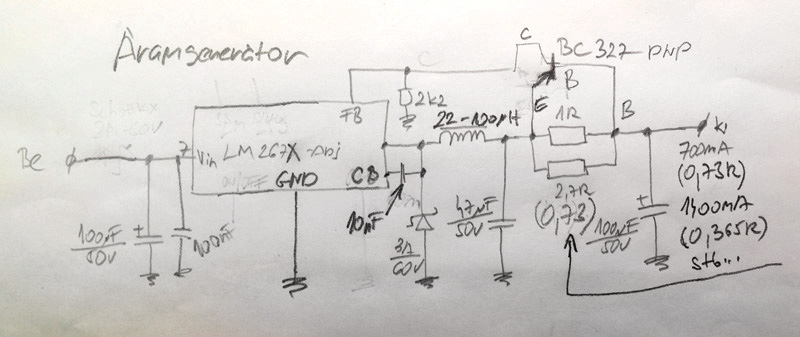 Áramgenerátor
C
BC 327 - PNP
B
E
FB
2k2
22-120µH
1R
B
Be
7
Vin
LM267X-Adj
CB
GND
ki
700mA
(0,73R)
1400mA
(0,365R)
stb...
10nF
2,7R
(0,73)
100µF
50V
100nF
47µF
50V
100µF
50V
3A
60V